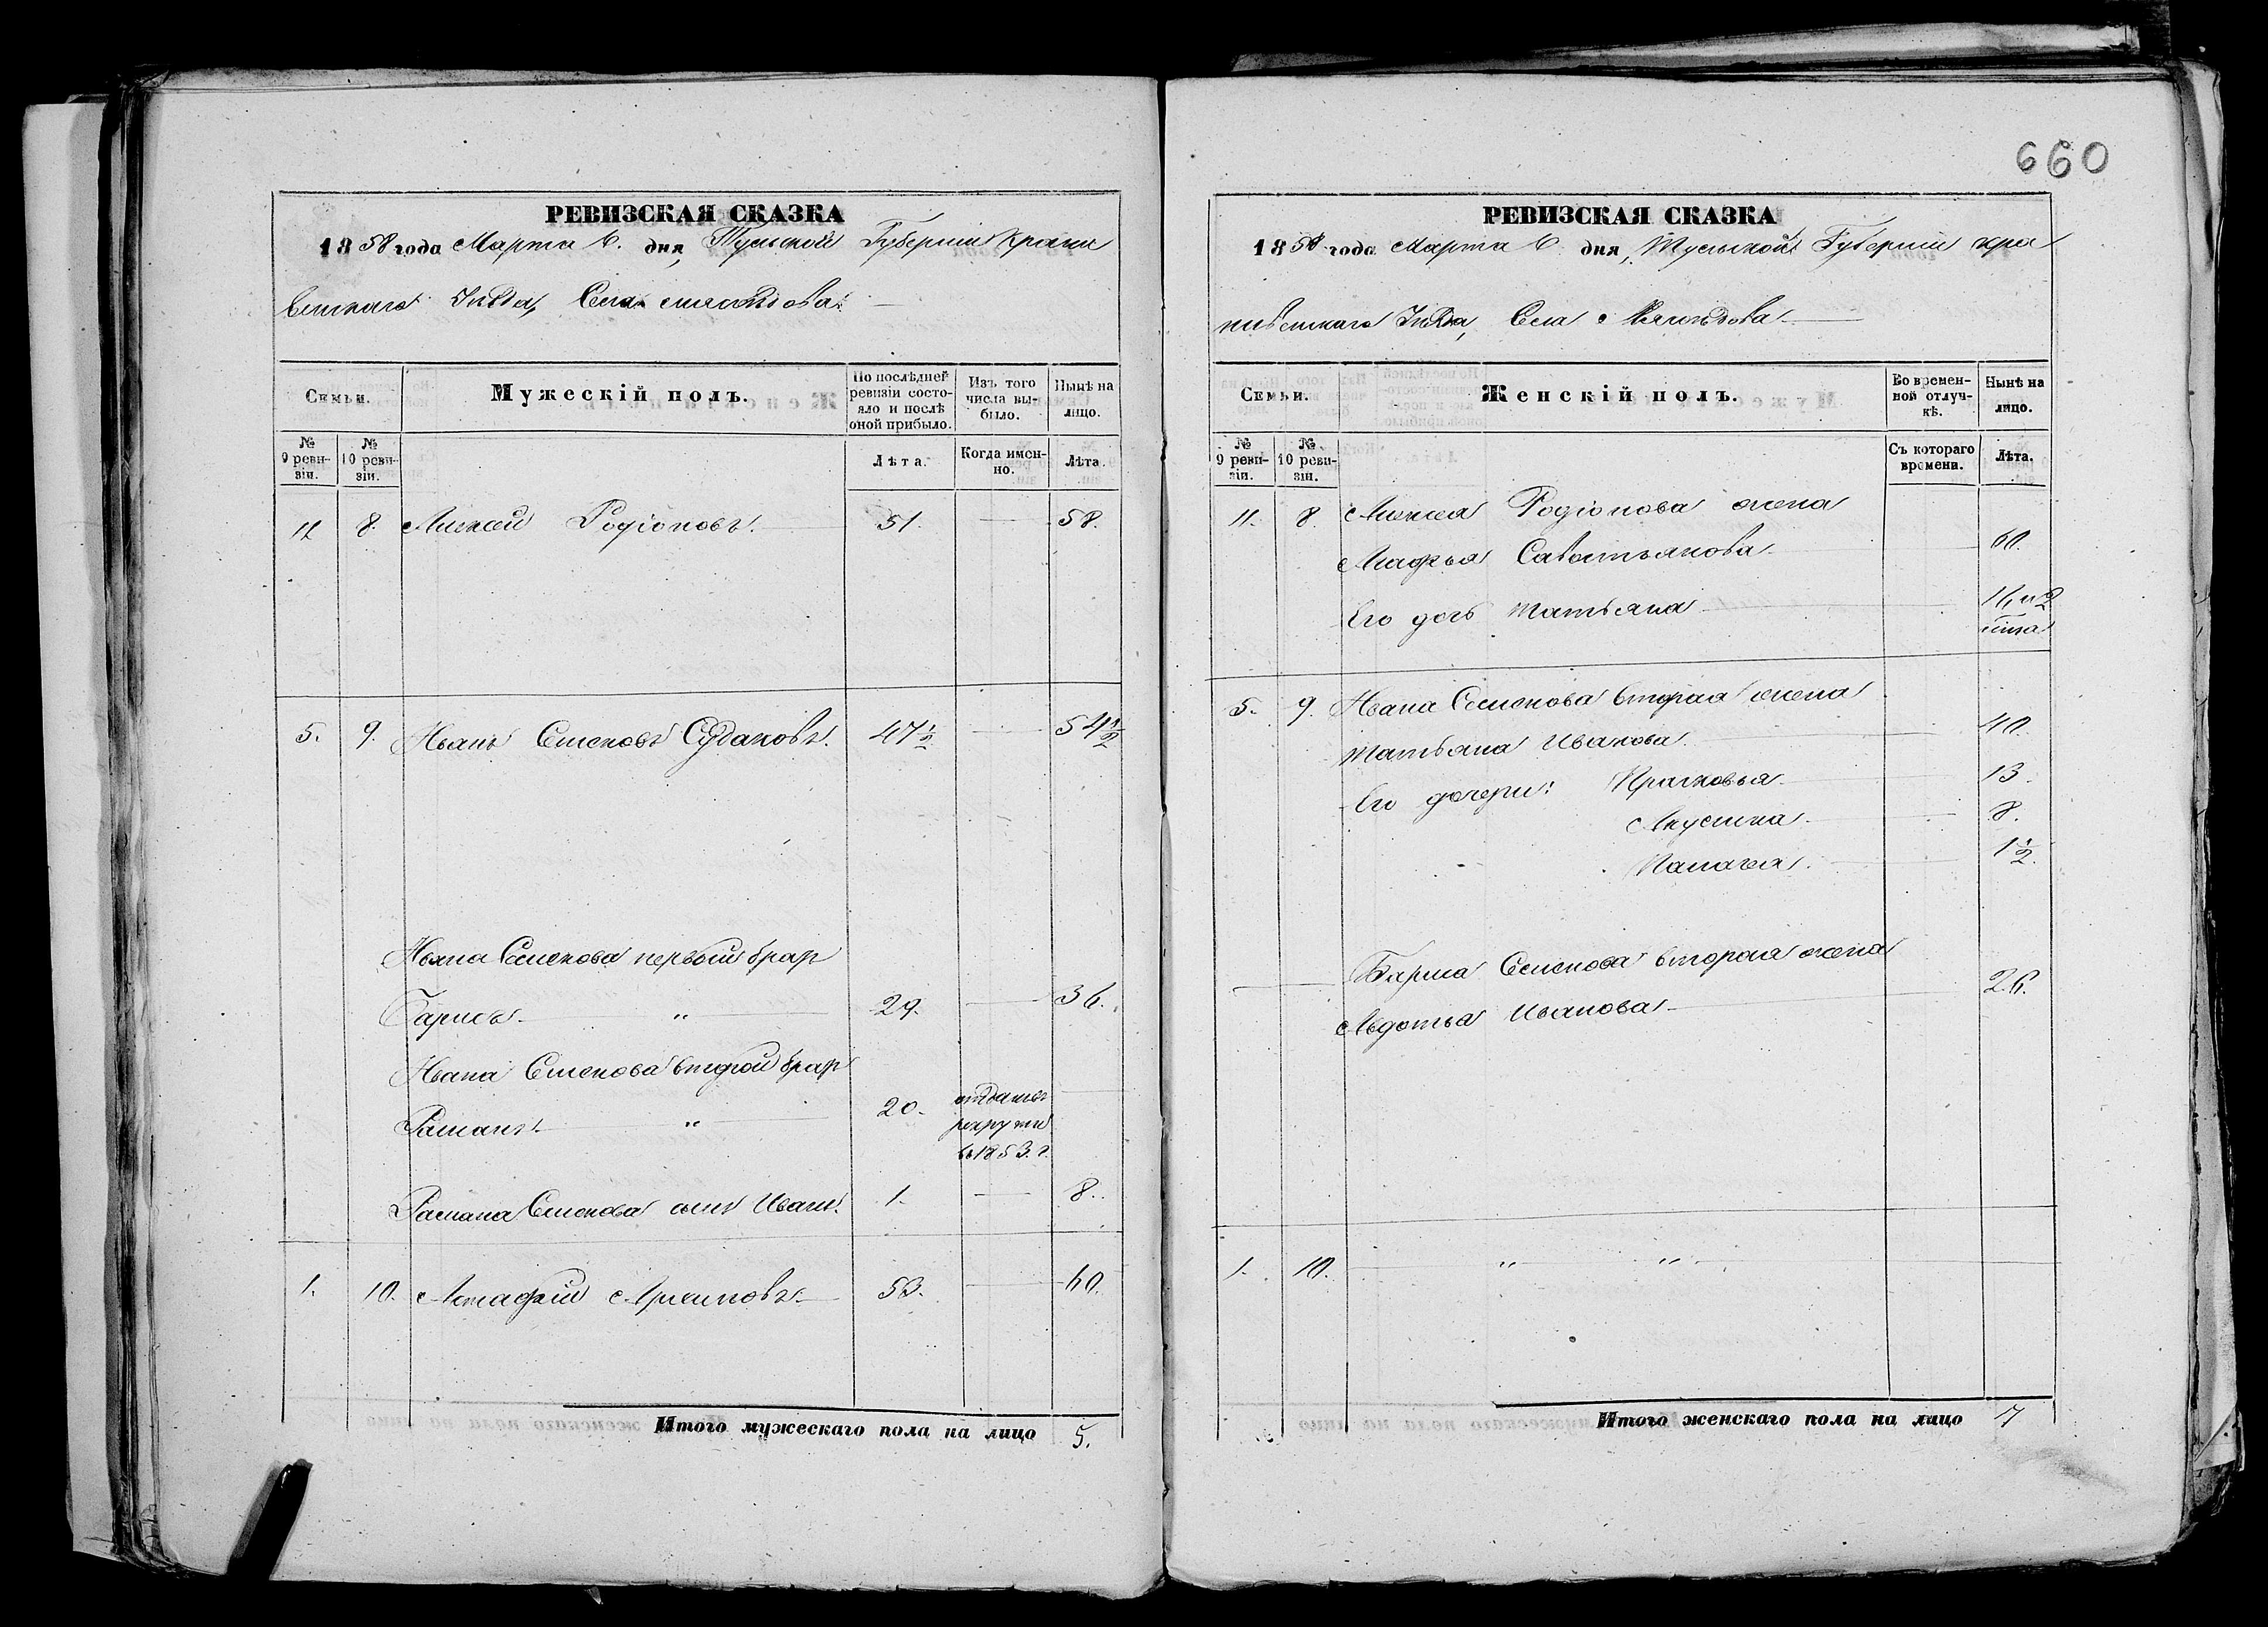 660
РЕВИЗСКАЯ СКАЗКА
1858 года Марта 6. дня, Тульской Губерніи Крапи
венскаго Уѣзда, Села
Семьи.
Мужескій полъ.
По послѣдней ревизіи состояло и послѣ оной прибыло.
Изъ того числа выбыло.
Нынѣ на лицо.
№ 9 ревизіи.
№ 10 ревизіи.
Лѣта.
Когда именно.
Лѣта.
11 8 Алексей Родіоновъ. 51. 58.
5. 9. Иванъ Семеновъ Судаковъ. 47 1/2 54 1/2
Ивана Семенова первый брат
Барисъ " 29. 36.
Ивана Семенова второй брат
Раманъ " 20. отданъ
рекруты
въ 1853. г.
Рамана Семенова сынъ Иванъ. 1. 8.
1. 10. Астафій Архиповъ 53. 60.
Итого мужескаго пола на лицо 5.
РЕВИЗСКАЯ СКАЗКА
1858 года Марта 6 дня, Тульской Губерніи кра
пивенскаго Уѣзда, Села
Семьи.
Женскій полъ.
Во временной отлучкѣ.
Нынѣ на лицо.
№ 9 ревизіи.
№ 10 ревизіи.
Съ котораго времени.
Лѣта.
11. 8. Алексея Родіонова жена
Марфья Савостьянова 60.
Его дочь Татьяна
5. 9. Ивана Семенова вторая жена
Татьяна Иванова. 40.
Его дочери: Прасковья 13.
Акулина 8.
Палагея. 1 1/2.
Бариса Семенова вторая жена
Авдотья Иванова 26.
1. 10. " "
Итого женскаго пола на лицо 7